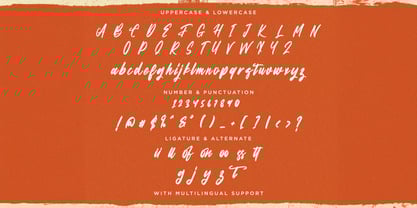 UPPERCASE & LOWERCASE
A B C D E F G H I J K L M N
O P Q R S T U V W X Y Z
abcdefghijklmnopqrstuvwxyz
NUMBER & PUNCTUATION
1234567890
LIGATURE & ALTERNATE
WITH MULTILINGUAL SUPPORT